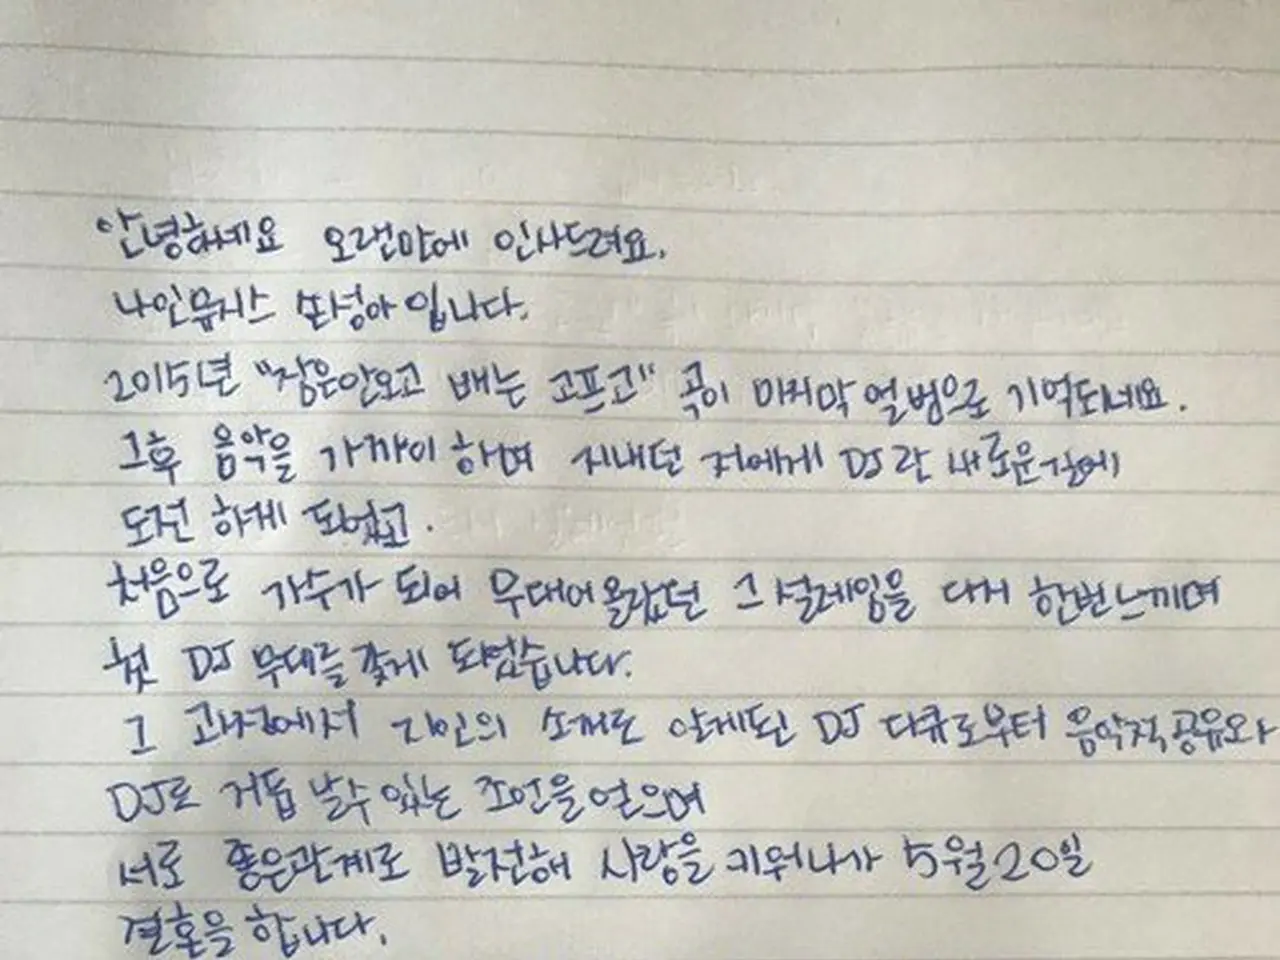 안녕하세요 오랜만에 인사드려요.
나인뮤지스 손성아 입니다.
2015년 "잠은안오고 배는 고프고" 곡이 마지막 앨범으로 기억되네요.
그후 음악을 가까이 하며 지내던 저에게 DJ란 새로운점에
도전 하게 되었고.
처음으로 가수가 되어 무대에올랐던 그 설레임을 다시 한번느끼며
첫 DJ 무대를 갖게 되었습니다.
그 과정에서 지인의 소개로 알게된 DJ 다큐로부터 음악적공유와
DJ로 거듭 날수 있는 조언을얻으며
서로 좋은관계로 발전해 사랑을 키워나가 5월20일
결혼을 합니다.